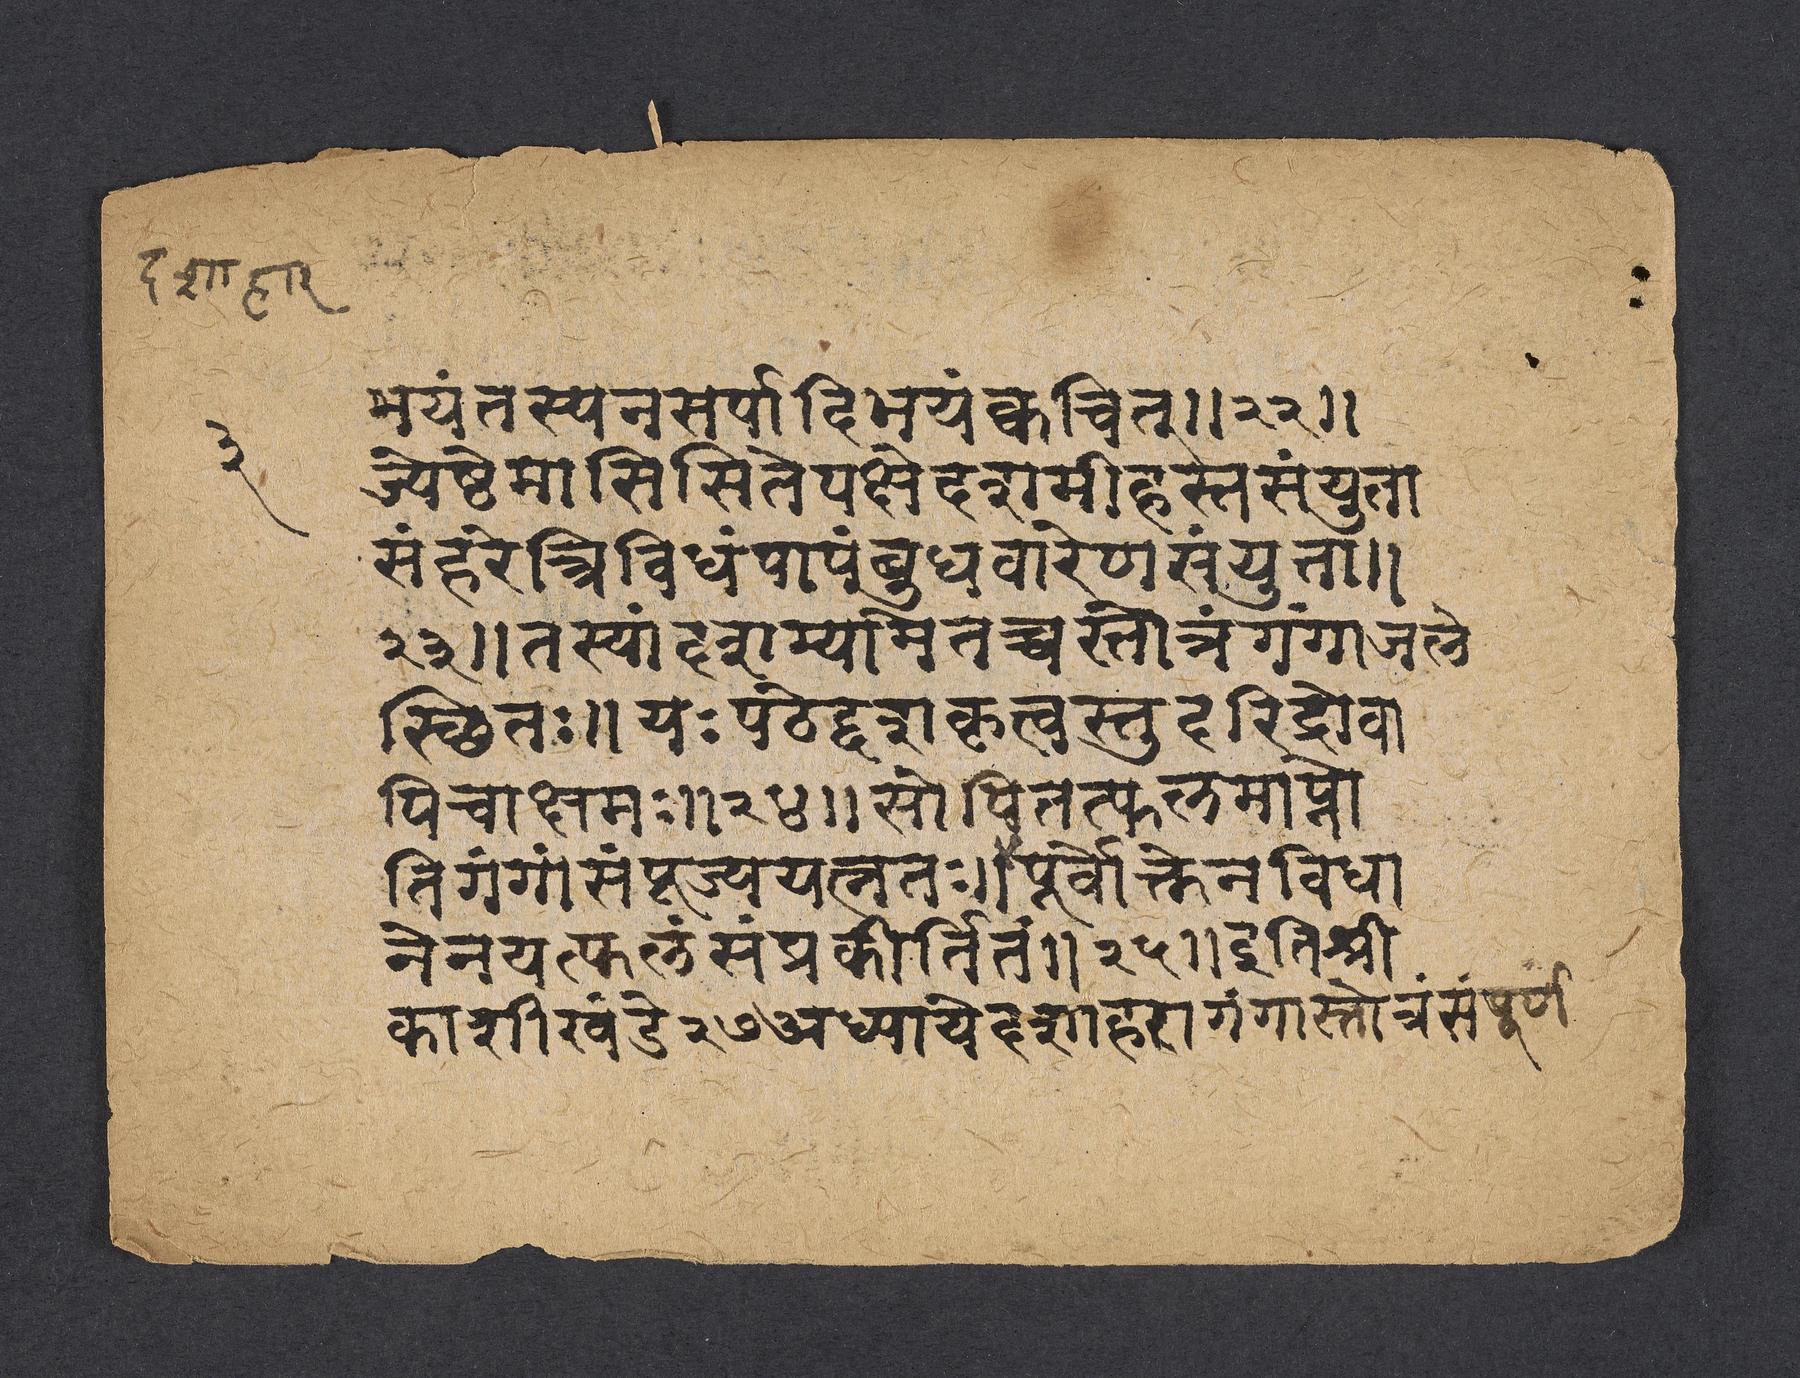 दशाहार
३
भयंतस्यनसर्पादिभयंक्वचित्॥२२॥
ज्येष्ठेमासिसितेपक्षेदशमीहस्तसंयुता
संहरेत्त्रिविधंपापंबुधवारेणसंयुता॥
२३॥तस्यांदशम्यामेतच्चस्तोत्रंगंगाजले
स्छितः॥यःपठेद्दशकृत्वस्तुदरिद्रोवा
पिचाक्षमः॥२४॥सोपितत्फलमाप्नो
तिगंगांसंपूज्ययत्नतः॥पूर्वोक्तेनविधा
नेनयत्फलंसंप्रकीर्तितं॥२५॥इतिश्री
काशीखंडे२७अध्यायेदशाहरागंगास्तोत्रंसंपूर्ण